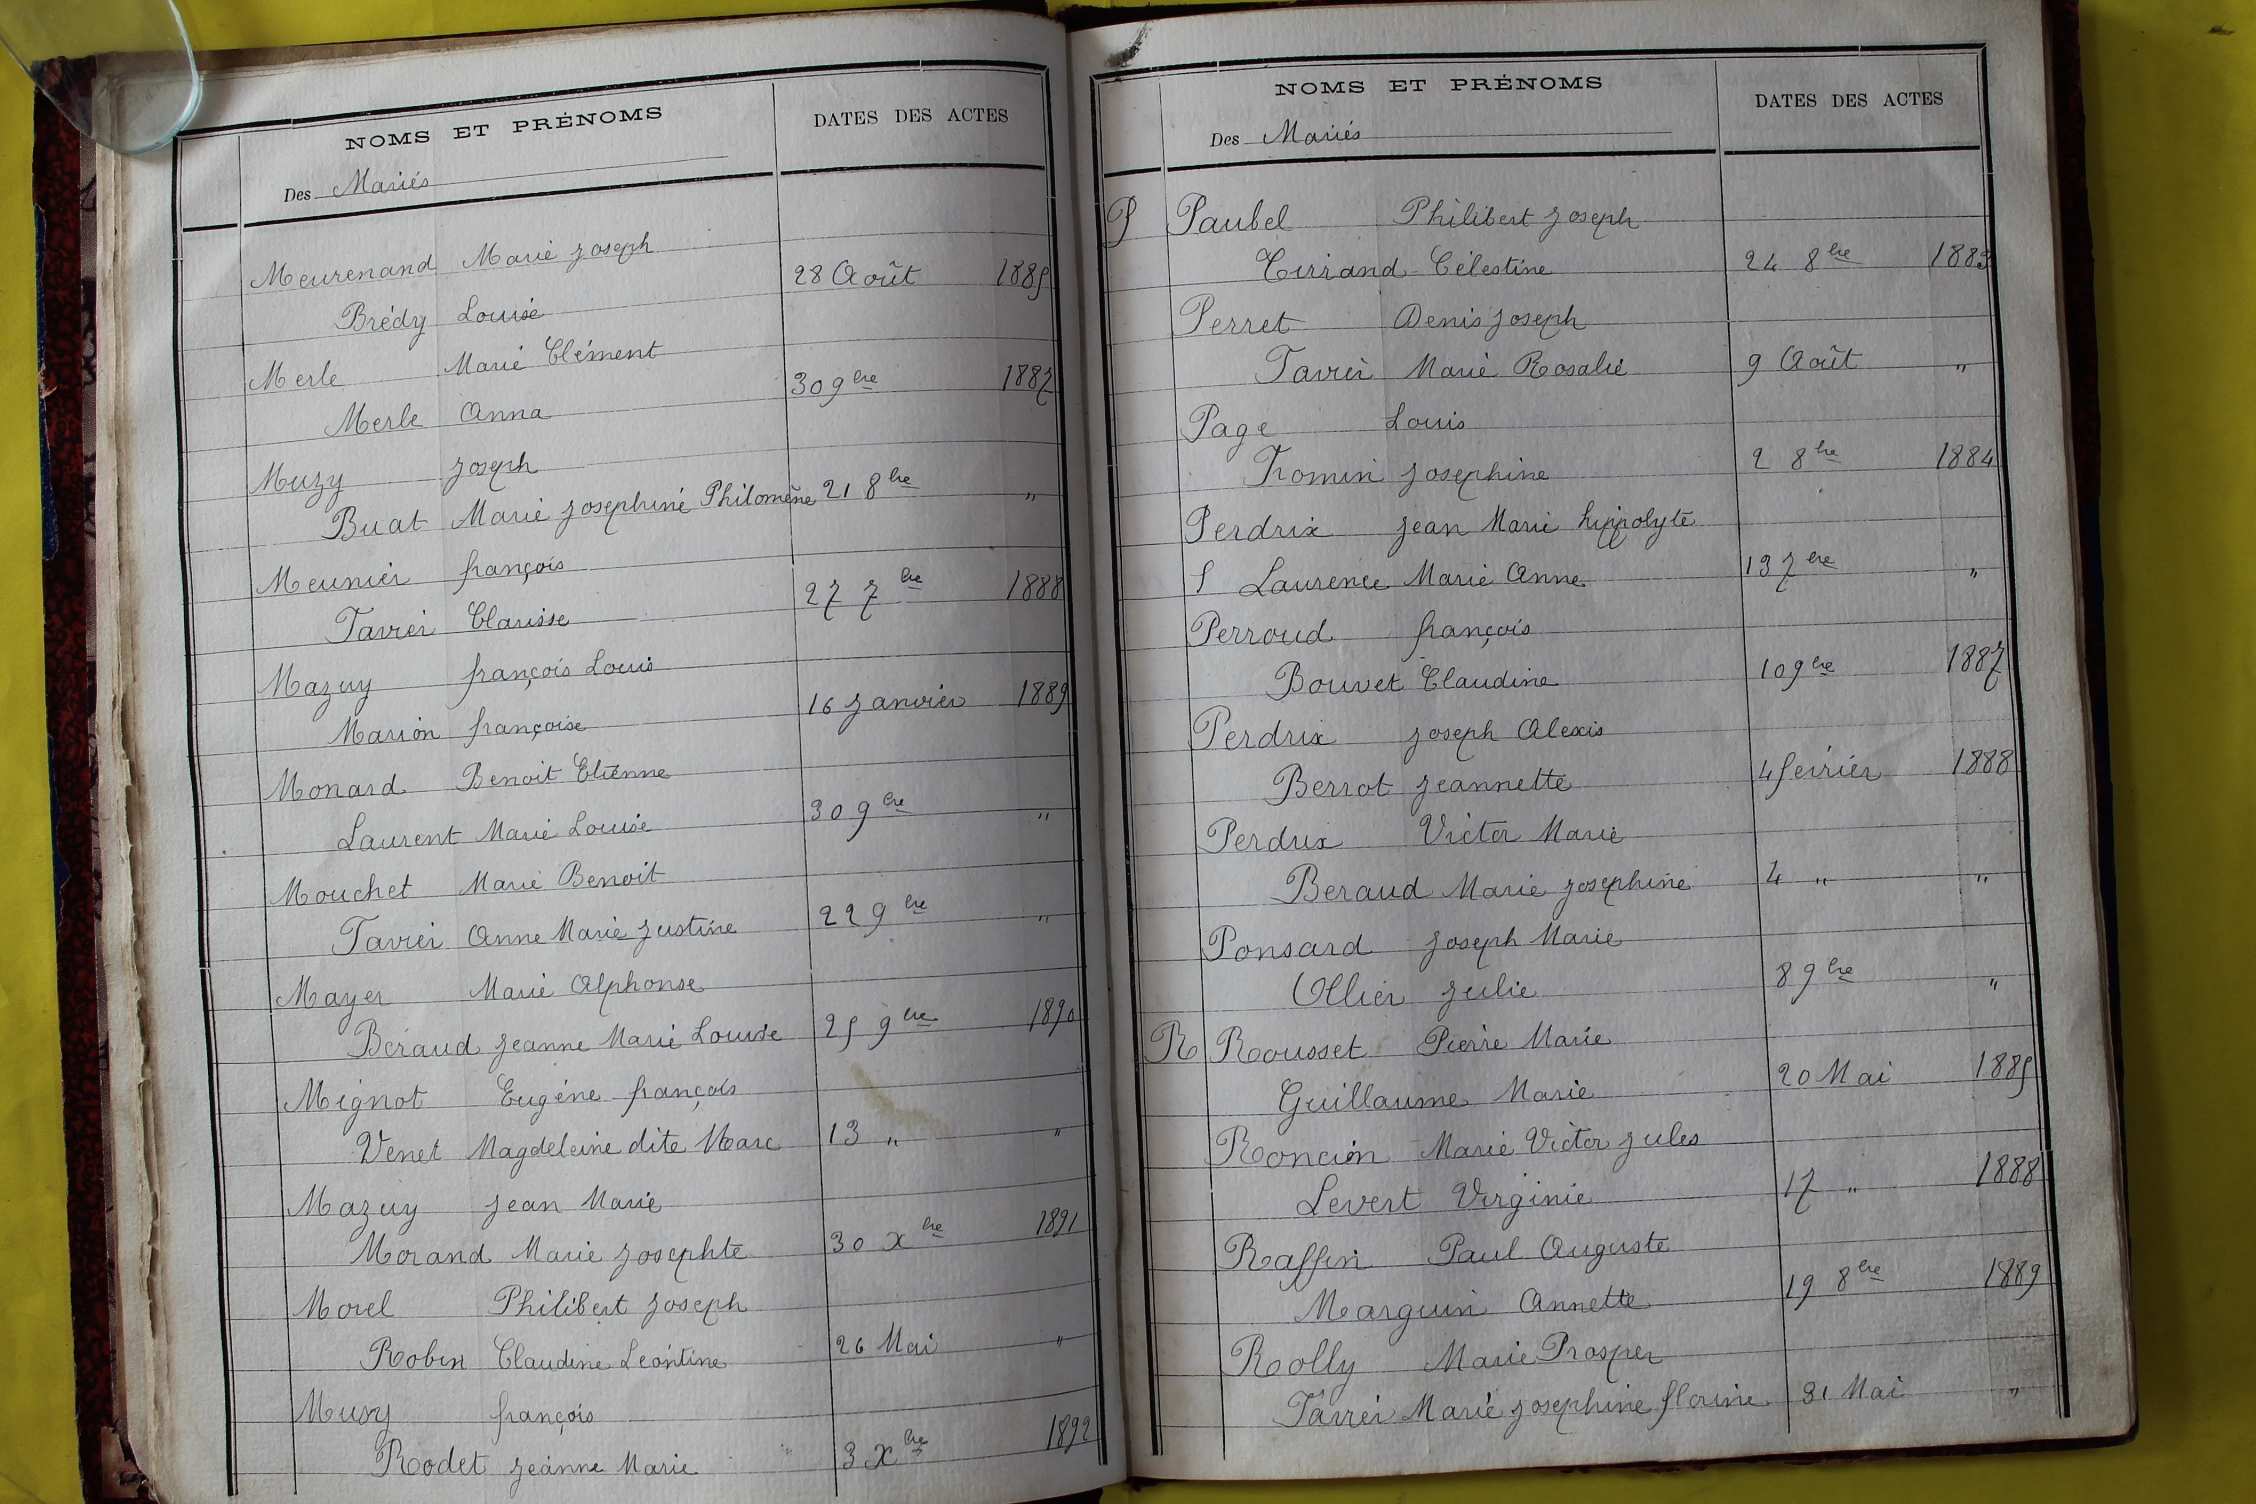 NOMS ET PRÉNOMS
DATES DES ACTES
Des Mariés
Meurenand Marie Joseph
Brédy Louise 28 Août 1885
Merle Marie Clément
Merle Anna 30 9bre 1887
Muzy Joseph
Buat Marie Josephine Philomène 21 8bre "
Meunier françois
Tavier Clarisse 27 7bre 1888
Mazuy françois Louis
Marion françoise 16 Janvier 1889
Monard Benoit Etienne
Laurent Marie Louise 30 9bre "
Mouchet Marie Benoit
Tavier Anne Marie Justine 22 9bre "
Mayer Marie Alphonse
Béraud Jeanne Marie Louise 25 9bre 1890
Mignot Eugéne françois
Venet Magdeleine dite Marc 13 " "
Mazuy Jean Marie
Morand Marie Josephte 30 Xbre 1891
Morel Philibert Joseph
Robin Claudine Léontine 26 Mai "
Musy françois
Rodet Jeanne Marie 3 Xbre 1892
NOMS ET PRÉNOMS
DATES DES ACTES
Des Mariés
P Paubel Philibert Joseph
Célestine 24 8bre 1883
Perret Denis Joseph
Tavier Marie Rosalie 9 Août "
Page Louis
Josephine 2 8bre 1884
Perdrix Jean Marie hippolyte
Laurence Marie Anne 13 7bre "
Perroud françois
Bouvet Claudine 10 9bre 1887
Perdrix Joseph Alexis
Berrot Jeannette 4 février 1888
Perdrix Victor Marie
Beraud Marie Josephine 4 " "
Ponsard Joseph Marie
Ollier Julie 8 9bre "
R Rousset Pierre Marie
Guillaume Marie 20 Mai 1885
Roncin Marie Victor Jules
Levert Virginie 17 " 1888
Raffin Paul Auguste
Marguin Annette 19 8bre 1889
Rolly Marie Prosper
Tavier Marie Josephine florine 31 Mai "